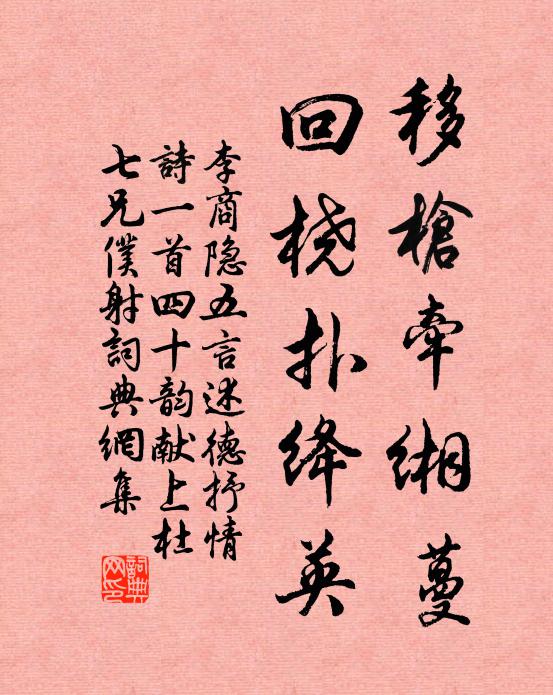 移槍牽緗蔓
回桡扑绛英
李商隐五言述德抒情
詩一首四十韵献上杜
七兄僕射詞典網集
詞典
网印